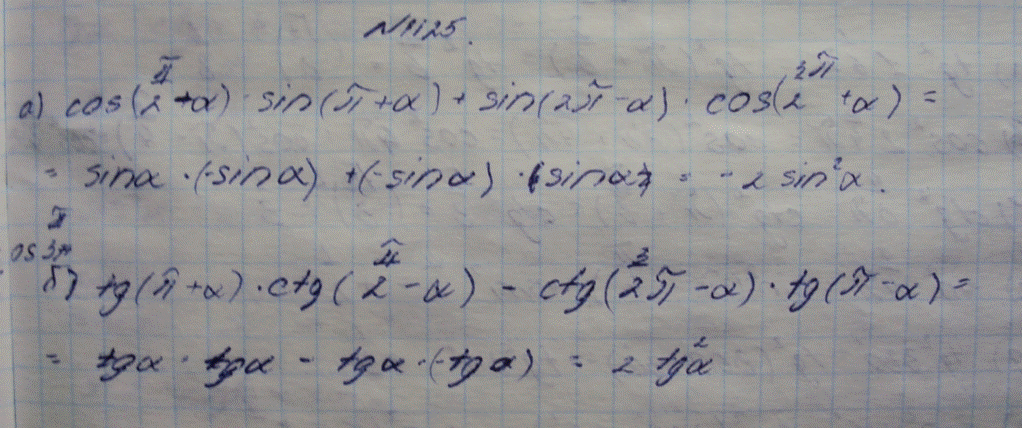 №1125.
а) cos(π/2 + α) · sin(π + α) + sin(2π - α) · cos(3π/2 + α) =
= sinα · (-sinα) + (-sinα) · (sinα) = -2 sin²α.
б) tg(π + α) · ctg(π/2 - α) - ctg(3/2π - α) · tg(π - α) =
= tgα · tgα - tgα · (-tgα) = 2 tg²α